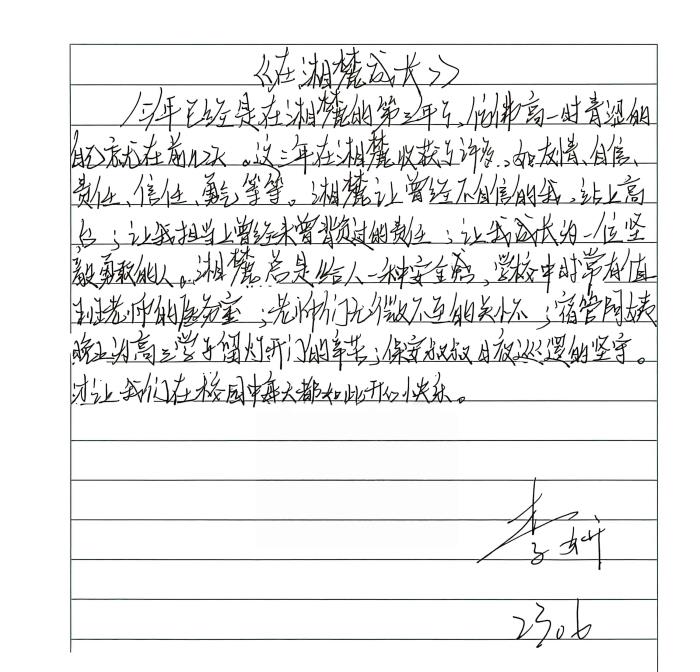 《在湘麓成长》
今年已经是在湘麓的第三年了、仿佛高一时青涩的
自己就在前几天。这三年在湘麓收获了许多.. 如友情、自信、
责任、信任、勇气等等。湘麓让曾经不自信的我,站上高
台;让我担当上曾经未曾背负过的责任;让我成长为一位坚
毅勇敢的人。湘麓总是给人一种安全感,学校中时常有值
班老师的医务室;老师们无微不至的关怀;宿管阿姨
晚上为高三学子留灯开门的辛苦;保安叔叔日夜巡逻的坚守。
才让我们在校园中每天都如此开心快乐。
李
2306